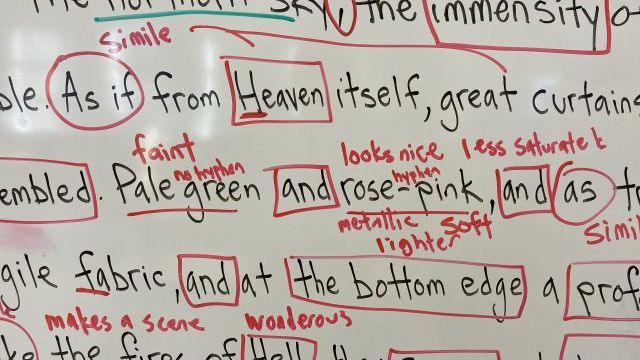 The northern sky, the immensity
simile
ble. As if from Heaven itself, great curtains
faint looks nice less saturated
no hyphen hyphen
embled. Pale green and rose-pink, and as
metallic soft simil
lighter
gile fabric, and at the bottom edge a prof
makes a scene wonderous
the fires of Hell